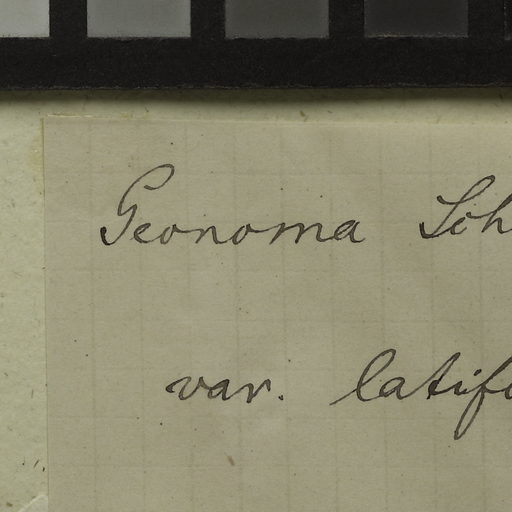 Geonoma Sch
var. latifo